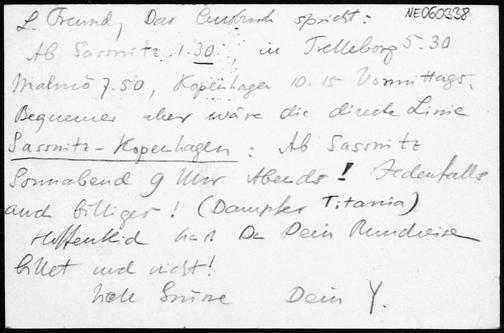 NE060338
L. Freund, Das Cursbuch spricht:
Ab Sassnitz 1.30, in Trelleborg 5.30
Malmö 7.50, Kopenhagen 10.15 Vormittags.
Bequemer aber wäre die directe Linie
Sassnitz-Kopenhagen: Ab Sassnitz
Sonnabend 9 Uhr Abends! Jedenfalls
auch billiger! (Dampfer Titania)
Hoffentlich hast Du Dein Rundreise
billet und nicht!
Viele Grüsse Dein Y.